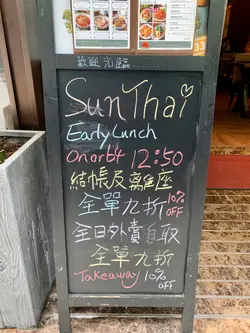 歡迎光臨
Sun Thai
Early Lunch
On or b4 12:50
結帳及離座
全單九折 10% OFF
全日外賣自取
全單九折
Takeaway 10% OFF